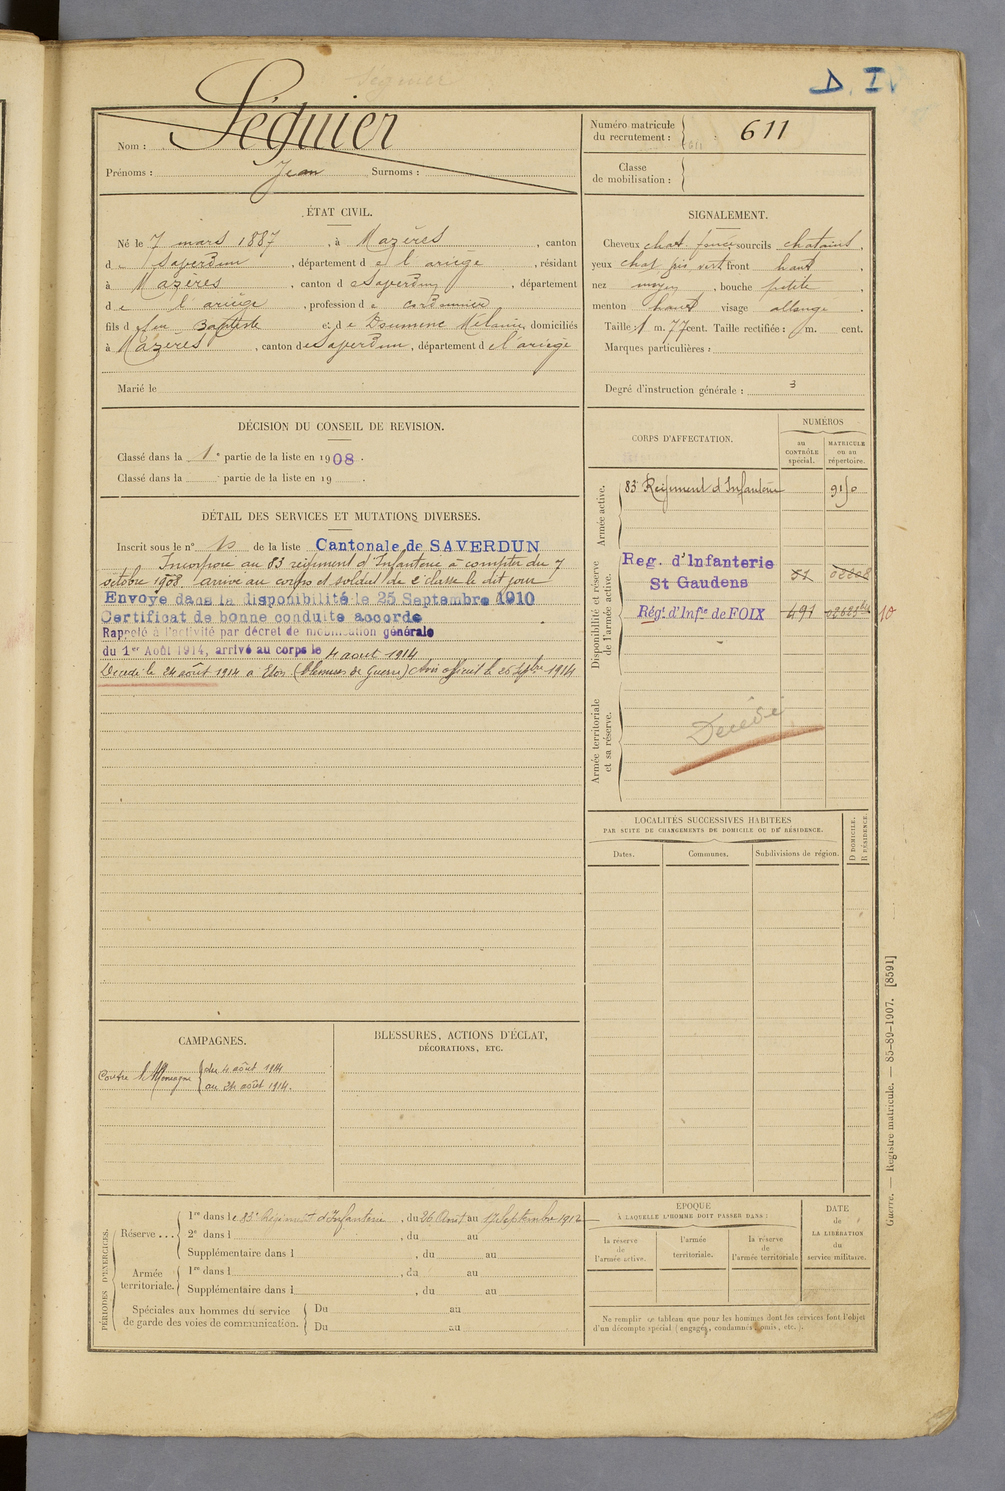 D. I
Nom : Séguier
Prénoms : Jean Surnoms :
Numéro matricule du recrutement : 611
Classe de mobilisation :
ÉTAT CIVIL.
Né le 7 mars 1887, à Mazères, canton
de Saverdun, département de l'ariège, résidant
à Mazères, canton de Saverdun, département
de l'ariège, profession de cordonnier
fils de feu Baptiste et de Doumenc Mélanie, domiciliés
à Mazères, canton de Saverdun, département de l'ariège
Marié le
SIGNALEMENT.
Cheveux chat. foncé, sourcils chatains,
yeux chat gris vert front haut,
nez moyen, bouche petite,
menton visage allongé.
Taille 1 m. 77 cent. Taille rectifiée : m. cent.
Marques particulières :
Degré d'instruction générale : 3
DÉCISION DU CONSEIL DE REVISION.
Classé dans la 1e partie de la liste en 1908.
Classé dans la partie de la liste en 19 .
DÉTAIL DES SERVICES ET MUTATIONS DIVERSES.
Inscrit sous le n° de la liste Cantonale de SAVERDUN
Incorporé au 83 régiment d'Infanterie à compter du 7
octobre 1908 arrivé au corps et soldat de 2e classe le dit jour
Envoyé dans la disponibilité le 25 Septembre 1910
Certificat de bonne conduite accordé
Rappelé à l'activité par décret de mobilisation générale
du 1er Août 1914, arrivé au corps le 4 aout 1914
Décédé le 24 août 1914 à (Blessures de Guerre) Avis officiel le 26 Septbre 1914
CORPS D'AFFECTATION.
NUMÉROS
au CONTRÔLE spécial.
MATRICULE ou au répertoire.
Armée active.
83e Régiment d'Infanterie
Disponibilité et réserve de l'armée active.
Reg. d'Infanterie
St Gaudens 51
Régt. d'Infie de FOIX 491
10
Armée territoriale et sa réserve.
Décédé
LOCALITÉS SUCCESSIVES HABITÉES
PAR SUITE DE CHANGEMENTS DE DOMICILE OU DE RÉSIDENCE.
Dates. Communes. Subdivisions de région. D DOMICILE. R RÉSIDENCE.
CAMPAGNES.
Contre l'Allemagne { du 4 août 1914
au 24 août 1914.
BLESSURES, ACTIONS D'ÉCLAT,
DÉCORATIONS, ETC.
PÉRIODES D'EXERCICES.
Réserve ...
1re dans le 83e Régiment d'Infanterie, du 26 Août au 17 Septembre 1912
2e dans l , du au
Supplémentaire dans l , du au
Armée territoriale.
1re dans l , du au
Supplémentaire dans l , du au
Spéciales aux hommes du service de garde des voies de communication.
Du au
Du au
EPOQUE
À LAQUELLE L'HOMME DOIT PASSER DANS :
la réserve de l'armée active.
l'armée territoriale.
la réserve de l'armée territoriale
DATE de LA LIBÉRATION du service militaire.
Ne remplir ce tableau que pour les hommes dont les services font l'objet
d'un décompte spécial (engagés, condamnés, omis, etc.).
Guerre. — Registre matricule. — 85-89-1907. [8591]